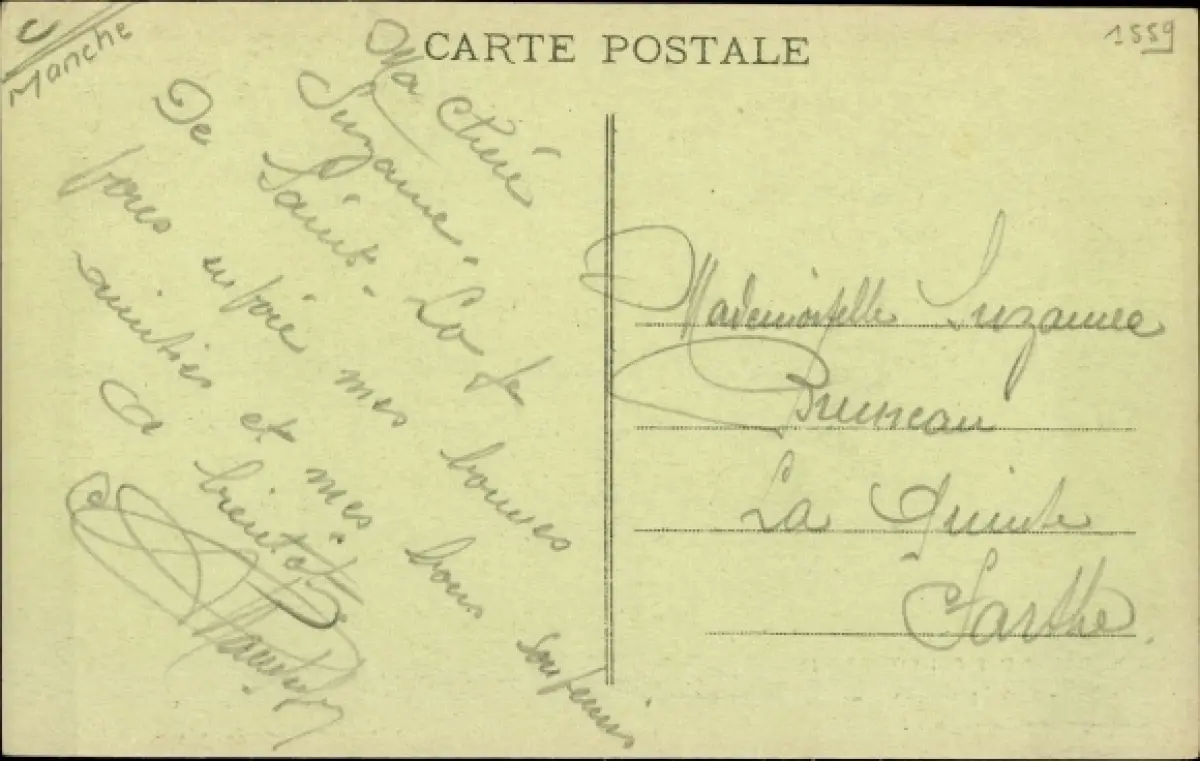 Manche
CARTE POSTALE
1559
Ma chère
Suzanne.
De Saint-Lo je
vous envoie mes bonnes
amitiés et mes bons souvenirs
A bientôt
Mademoiselle Suzanne
Bruneau
La Quinte
Sarthe.